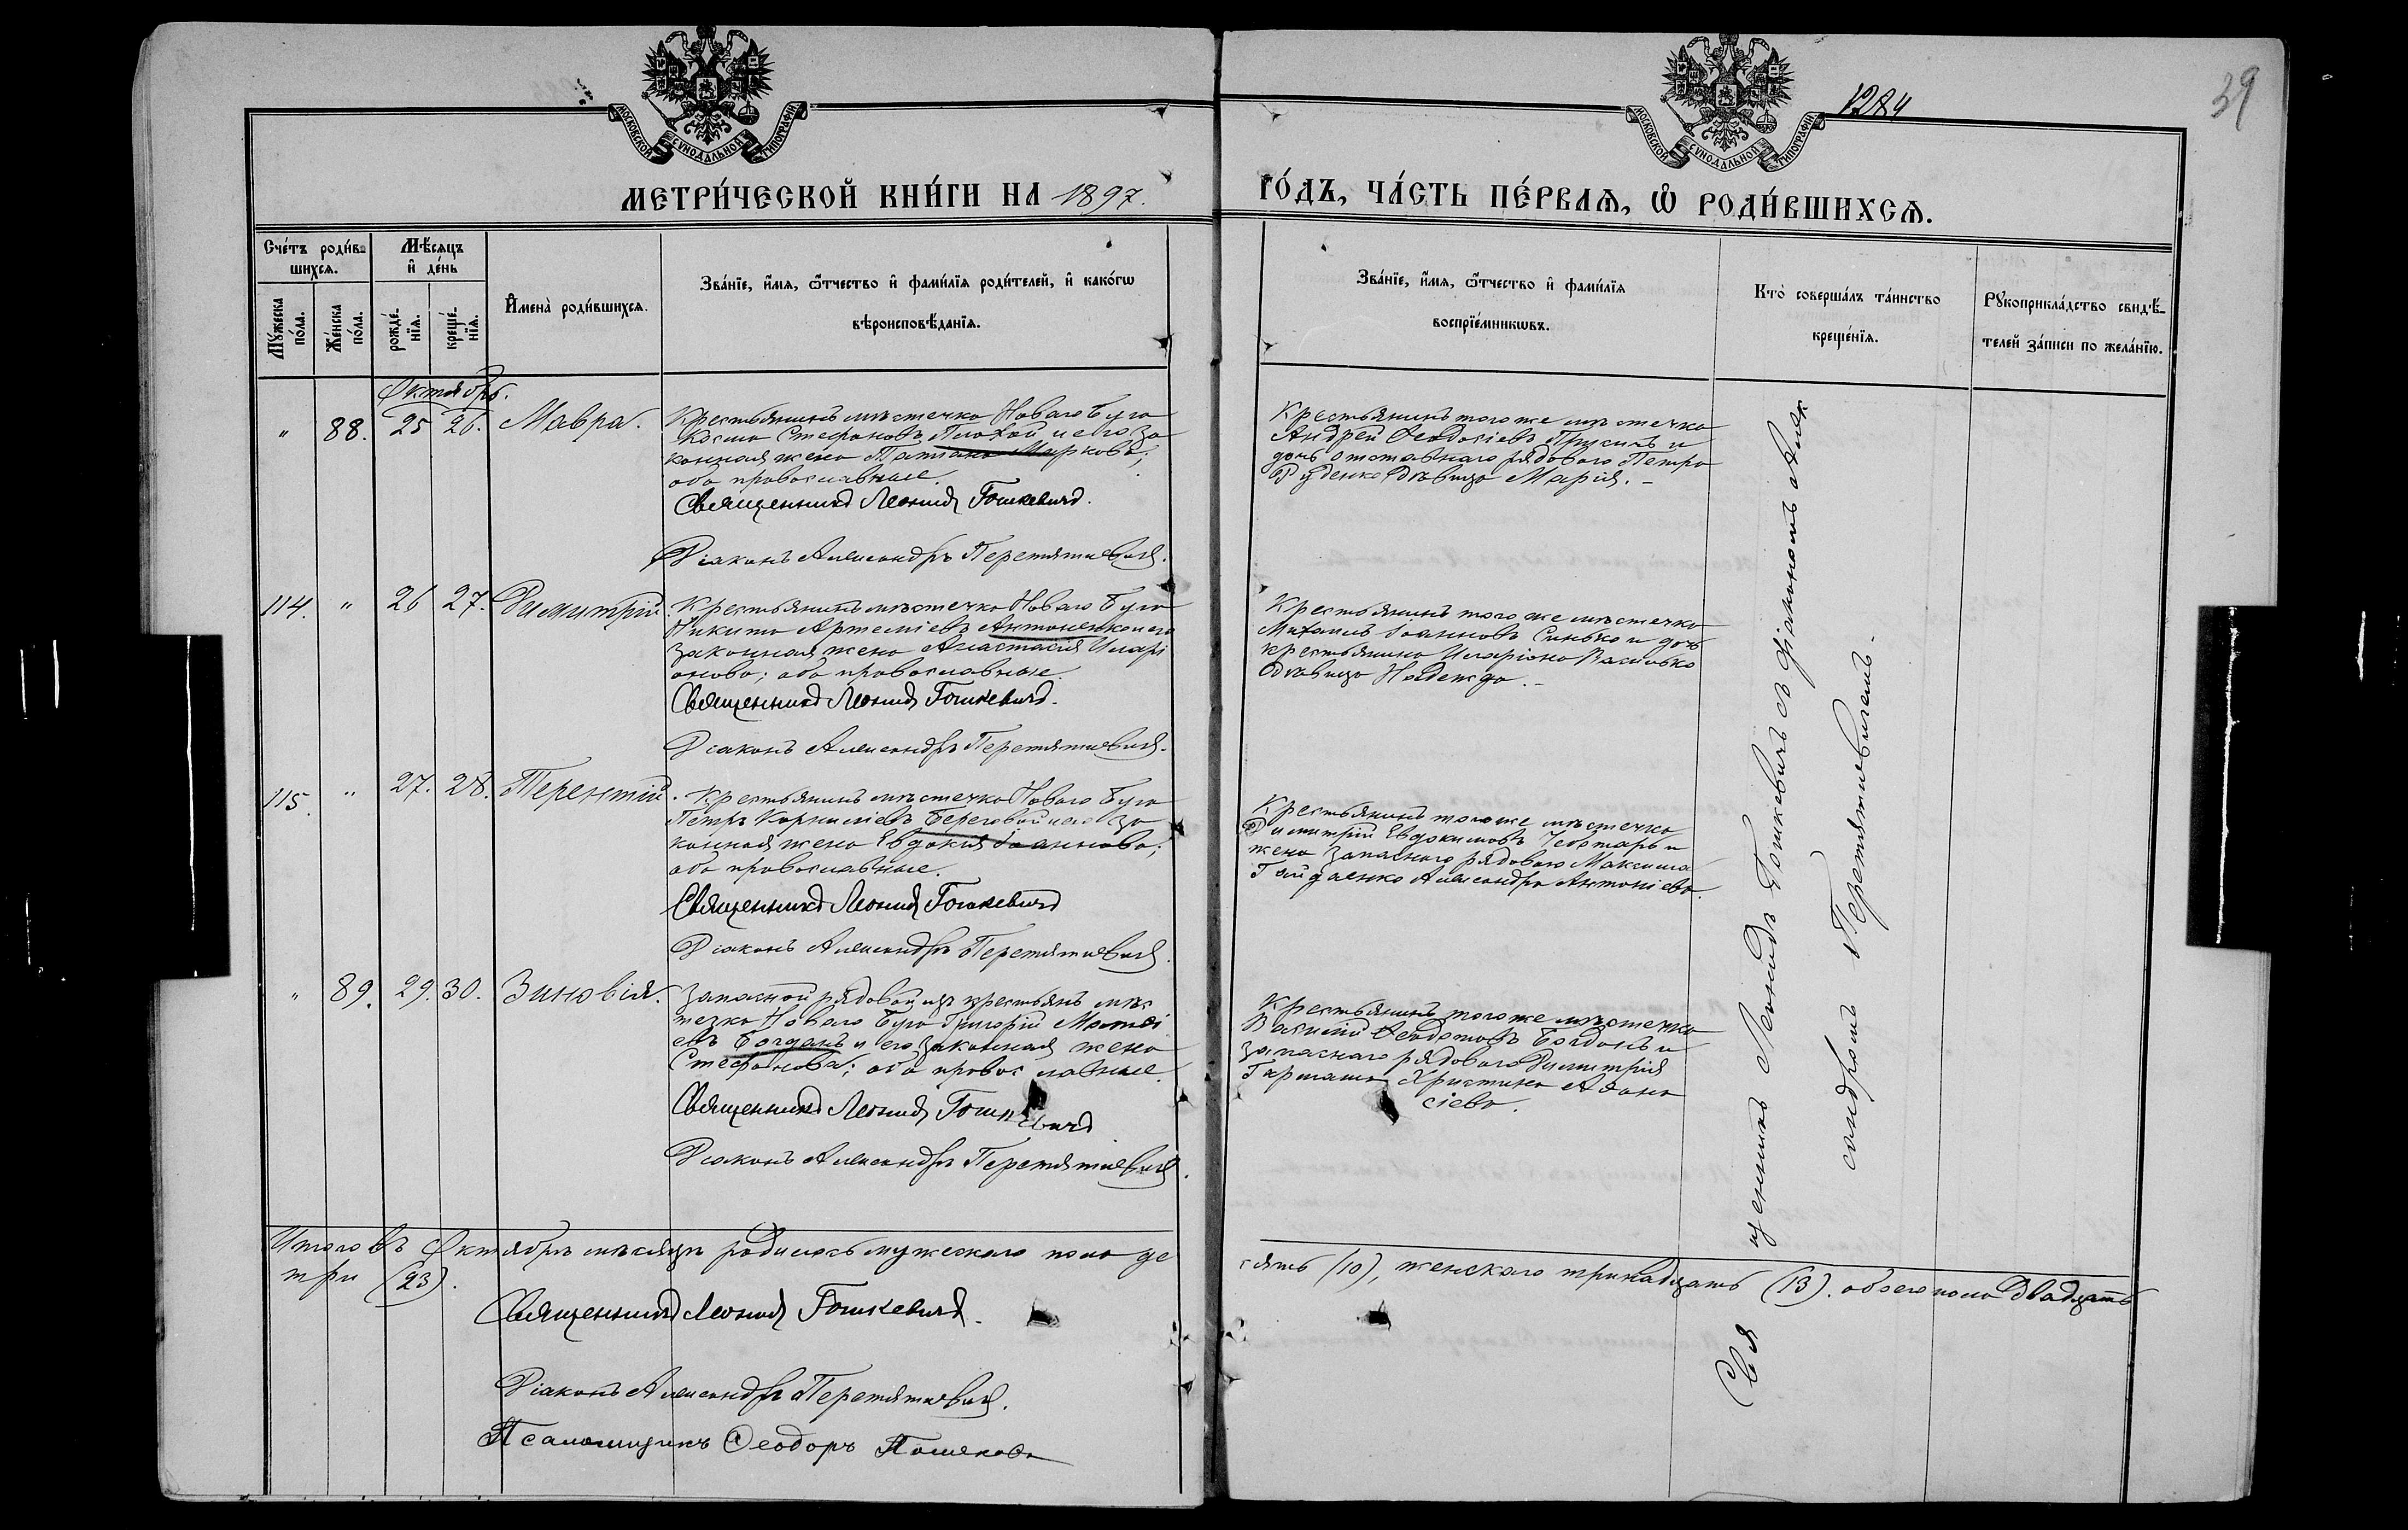 МОСКОВСКОЙ СѴНОДАЛЬНОЙ ТИПОГРАФІИ
МОСКОВСКОЙ СѴНОДАЛЬНОЙ ТИПОГРАФІИ
1284
39
МЕТРИ́ЧЕСКОЙ КНИ́ГИ НА 1897.
ГО́ДЪ, ЧА́СТЬ ПЕ́РВАѦ, Ѡ҆ РОДИ́ВШИХСѦ.
Сче́тъ роди́в-
шихсѧ.
Мѣ́сѧцъ
и҆ де́нь
Мꙋ́жеска
по́ла.
Же́нска
по́ла.
рожде́-
нїѧ.
креще́-
нїѧ.
И҆мена̀ роди́вшихсѧ.
Зва́нїе, и҆́мѧ, ѻ҆́тчество и҆ фами́лїѧ роди́телей, и҆ како́гѡ
вѣроисповѣ́данїѧ.
Зва́нїе, и҆́мѧ, ѻ҆́тчество и҆ фами́лїѧ
воспрїе́мникѡвъ.
Кто̀ соверша́лъ та́инство
креще́нїѧ.
Рꙋкоприкла́дство свидѣ́-
телей за́писи по жела́нїю.
Октябрь.
" 88. 25 26. Мавра.
Крестьянинъ мѣстечка Новаго Буга
Косма Стефановъ Плохой и его за
конная жена Татіана Маркова;
оба православные.
Священникъ Леонидъ Гошкевичъ.
Діаконъ Александръ Перетятковичъ.
Крестьянинъ тогоже мѣстечка
Андрей Ѳеодосіевъ и
дочь отставнаго рядового Петра
Руденко дѣвица Марія. –
114. " 26 27. Димитрій.
Крестьянинъ мѣстечка Новаго Буга
Никита Артеміевъ Антоненко и его
законная жена Анастасія Иларі
онова; оба православные.
Священникъ Леонидъ Гошкевичъ.
Діаконъ Александръ Перетятковичъ.
Крестьянинъ того же мѣстечка
Михаилъ Іоанновъ Синько и дочь
крестьянина Иларіона
дѣвица Надежда. –
115. " 27. 28. Терентій.
Крестьянинъ мѣстечка Новаго Буга
Петръ Корниліевъ Береговой и его за
конная жена Евдокія Іоаннова;
оба православные.
Священникъ Леонидъ Гошкевичъ
Діаконъ Александръ Перетятковичъ.
Крестьянинъ тогоже мѣстечка
Димитрій Евдокимовъ Чеботарь и
жена запаснаго рядового Максима
Гайдаенко Александра Антоніева.
" 89. 29. 30. Зиновія.
Запасной рядовой изъ крестьянъ мѣс
течка Новаго Буга Григорій Матѳі
евъ Богданъ и его законная жена
Стефанова; оба православные.
Священникъ Леонидъ Гошкевичъ
Діаконъ Александръ Перетятковичъ.
Крестьянинъ тогоже мѣстечка
Василій Ѳеодотовъ Богданъ и
запаснаго рядового Димитрія
Гармаша Христина Аѳана
сіева.
Священникъ Леонидъ Гошкевичъ съ діакономъ Алек
сандромъ Перетятковичемъ.
Итого въ Октябрѣ мѣсяцѣ родилось мужескаго пола де
сять (10), женскаго тринадцать (13). обоего пола двадцать
три (23).
Священникъ Леонидъ Гошкевичъ.
Діаконъ Александръ Перетятковичъ.
Псаломщикъ Ѳеодоръ